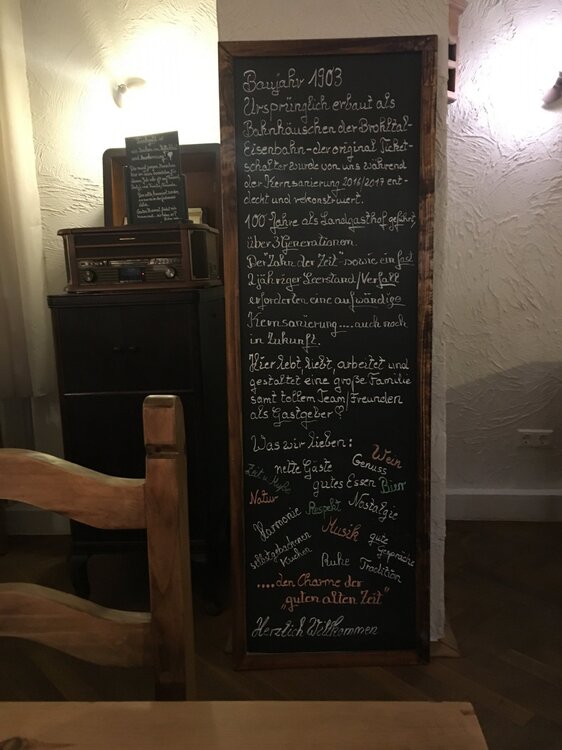 Baujahr 1903
Ursprünglich erbaut als
Bahnhäuschen der Brohltal-
Eisenbahn - der original Ticket-
schalter wurde von uns während
der Kernsanierung 2016/2017 ent-
deckt und rekonstruiert.
100 Jahre als Landgasthof geführt,
über 3 Generationen.
Der "Zahn der Zeit" sowie ein fast
2 jähriger Leerstand/Verfall
erforderten eine aufwändige
Kernsanierung .... auch noch
in Zukunft.
Hier lebt, liebt, arbeitet und
gestaltet eine große Familie
samt tollem Team/Freunden
als Gastgeber ♡
Was wir lieben:
Wein
nette Gäste
Genuss
Zeit u.
gutes Essen
Bier
Natur
Respekt
Nostalgie
Harmonie
Musik
gute
Gespräche
selbstgebackenen
Kuchen
Ruhe
Tradition
....den Charme der
"guten alten Zeit"
Herzlich Willkommen